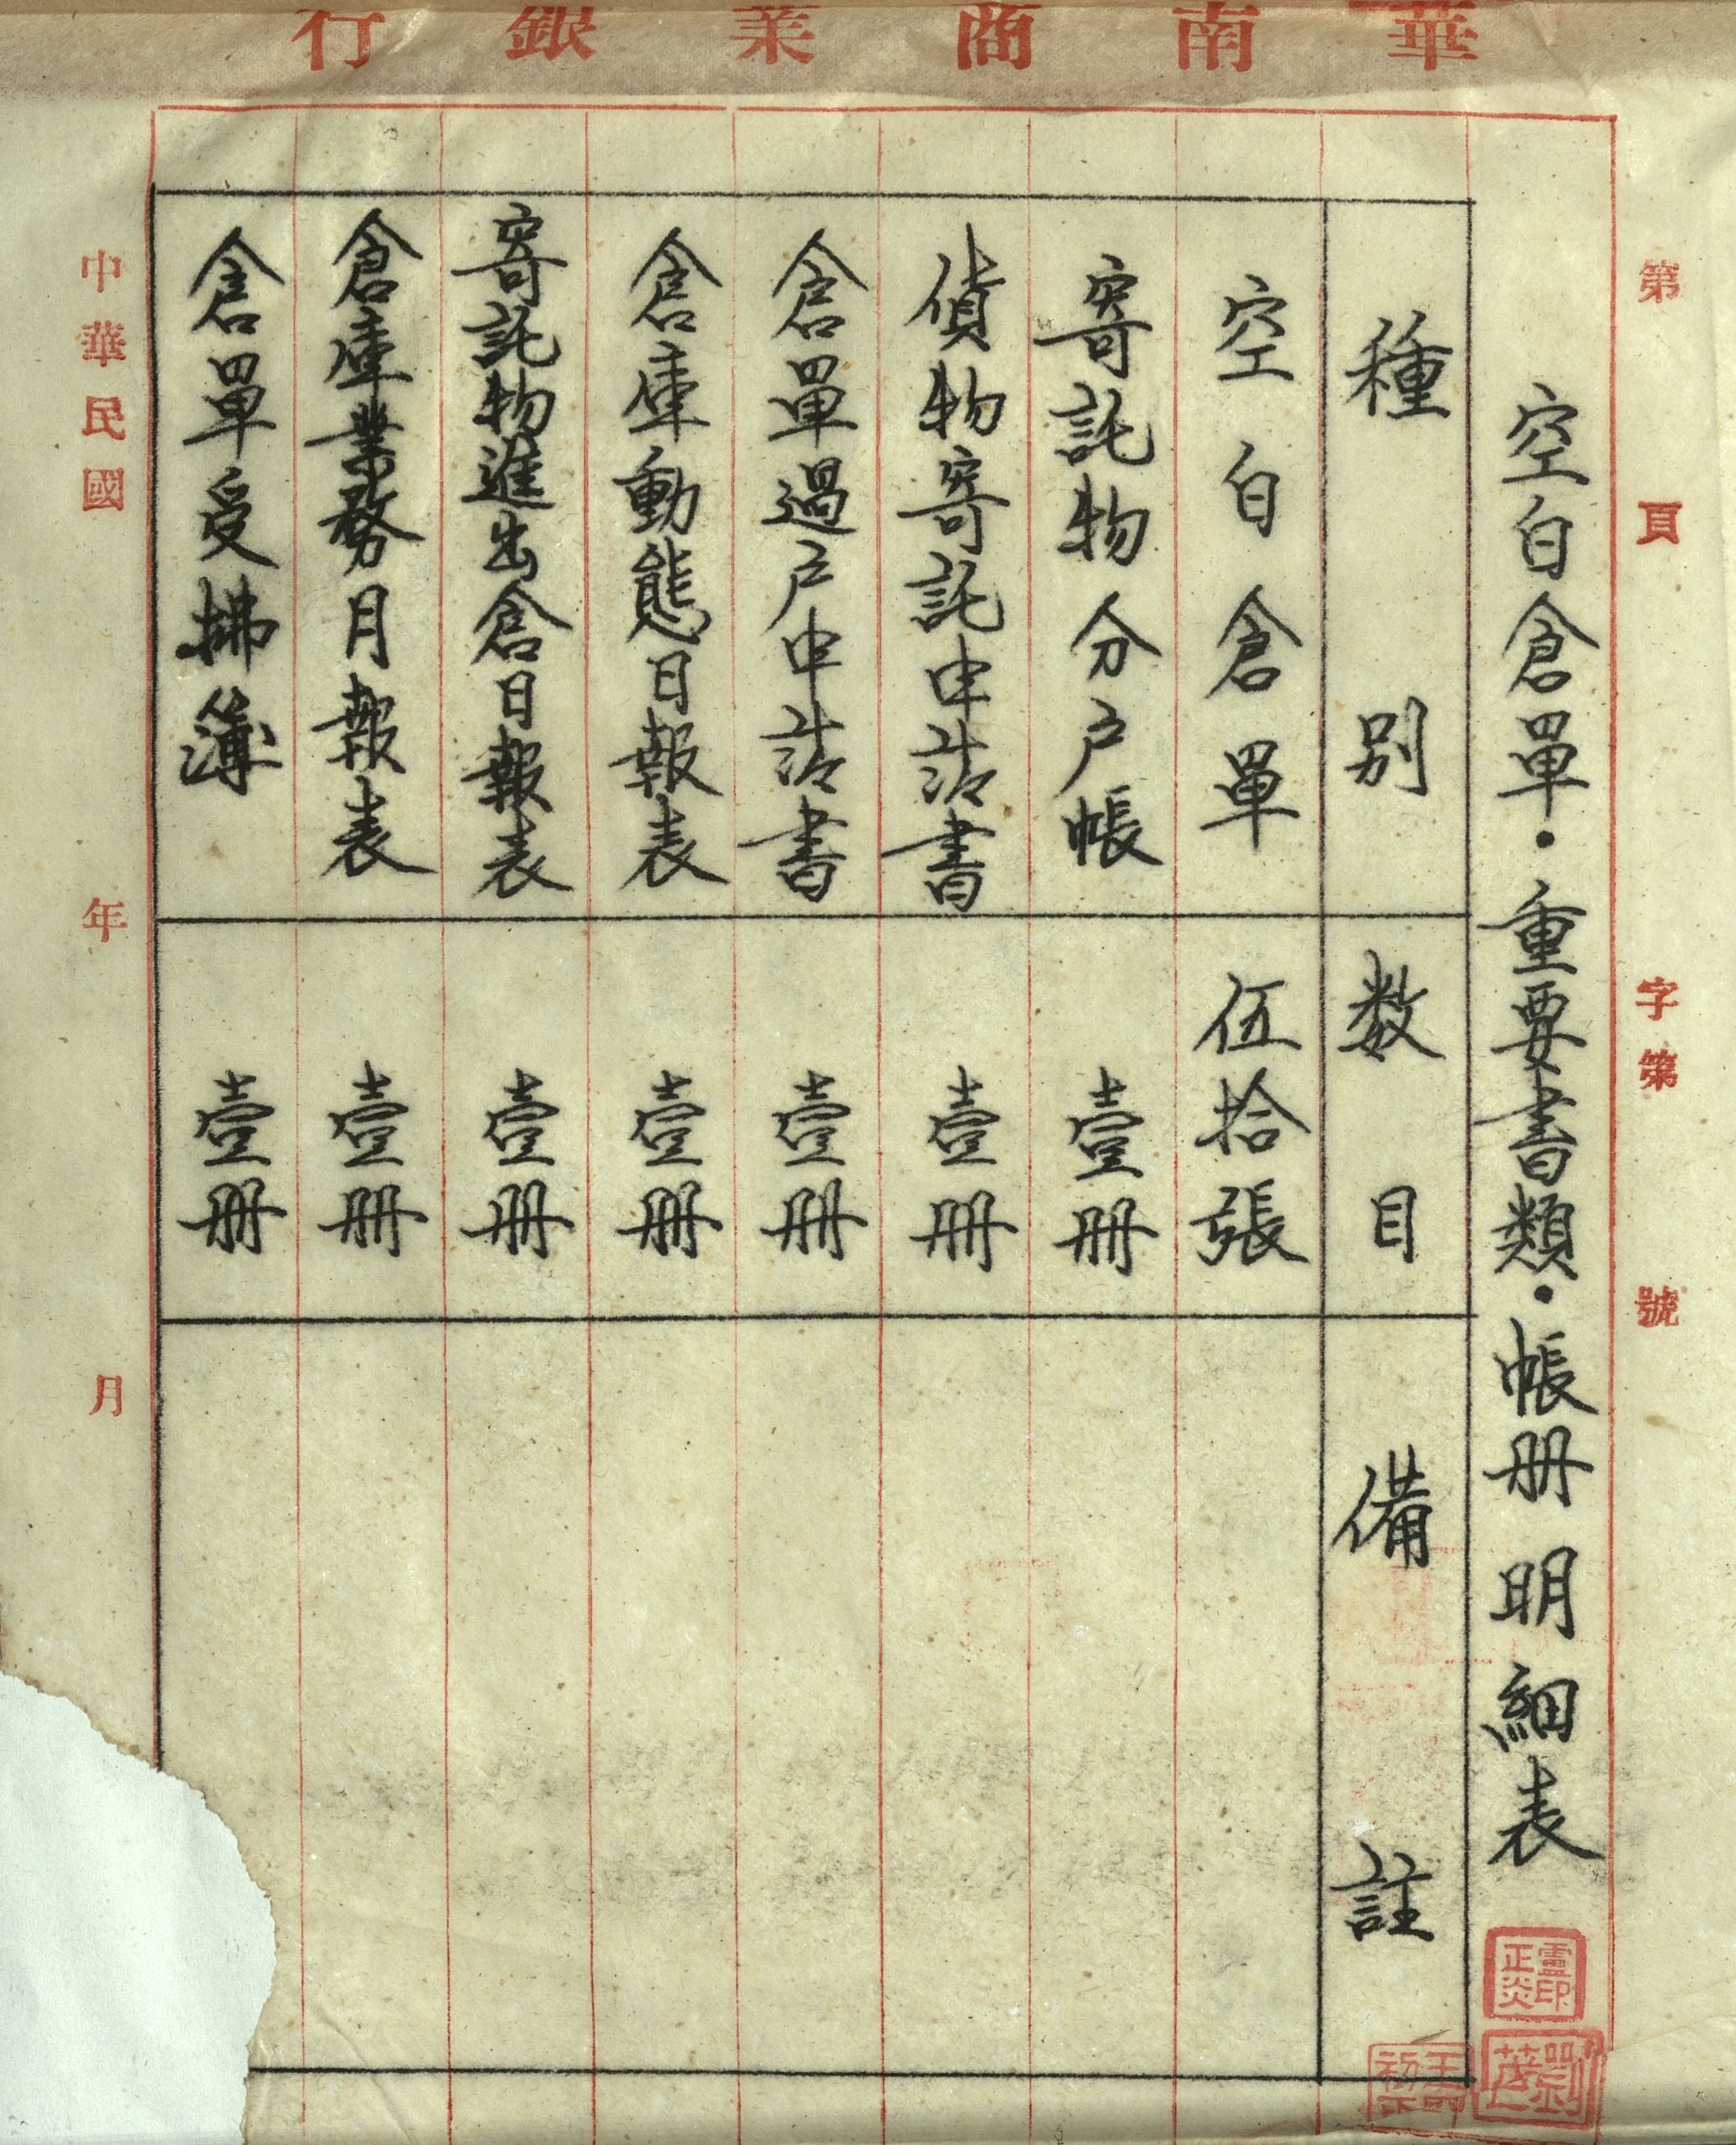 華南商業銀行
第 頁 字第 號
空白倉單・重要書類・帳册明細表
種別 数目 備註
空白倉單 伍拾張
寄託物分户帳 壹册
貨物寄託申請書 壹册
倉單過户申請書 壹册
倉庫動態日報表 壹册
寄託物進出倉日報表 壹册
倉庫業務月報表 壹册
倉單受拂簿 壹册
中華民國 年 月